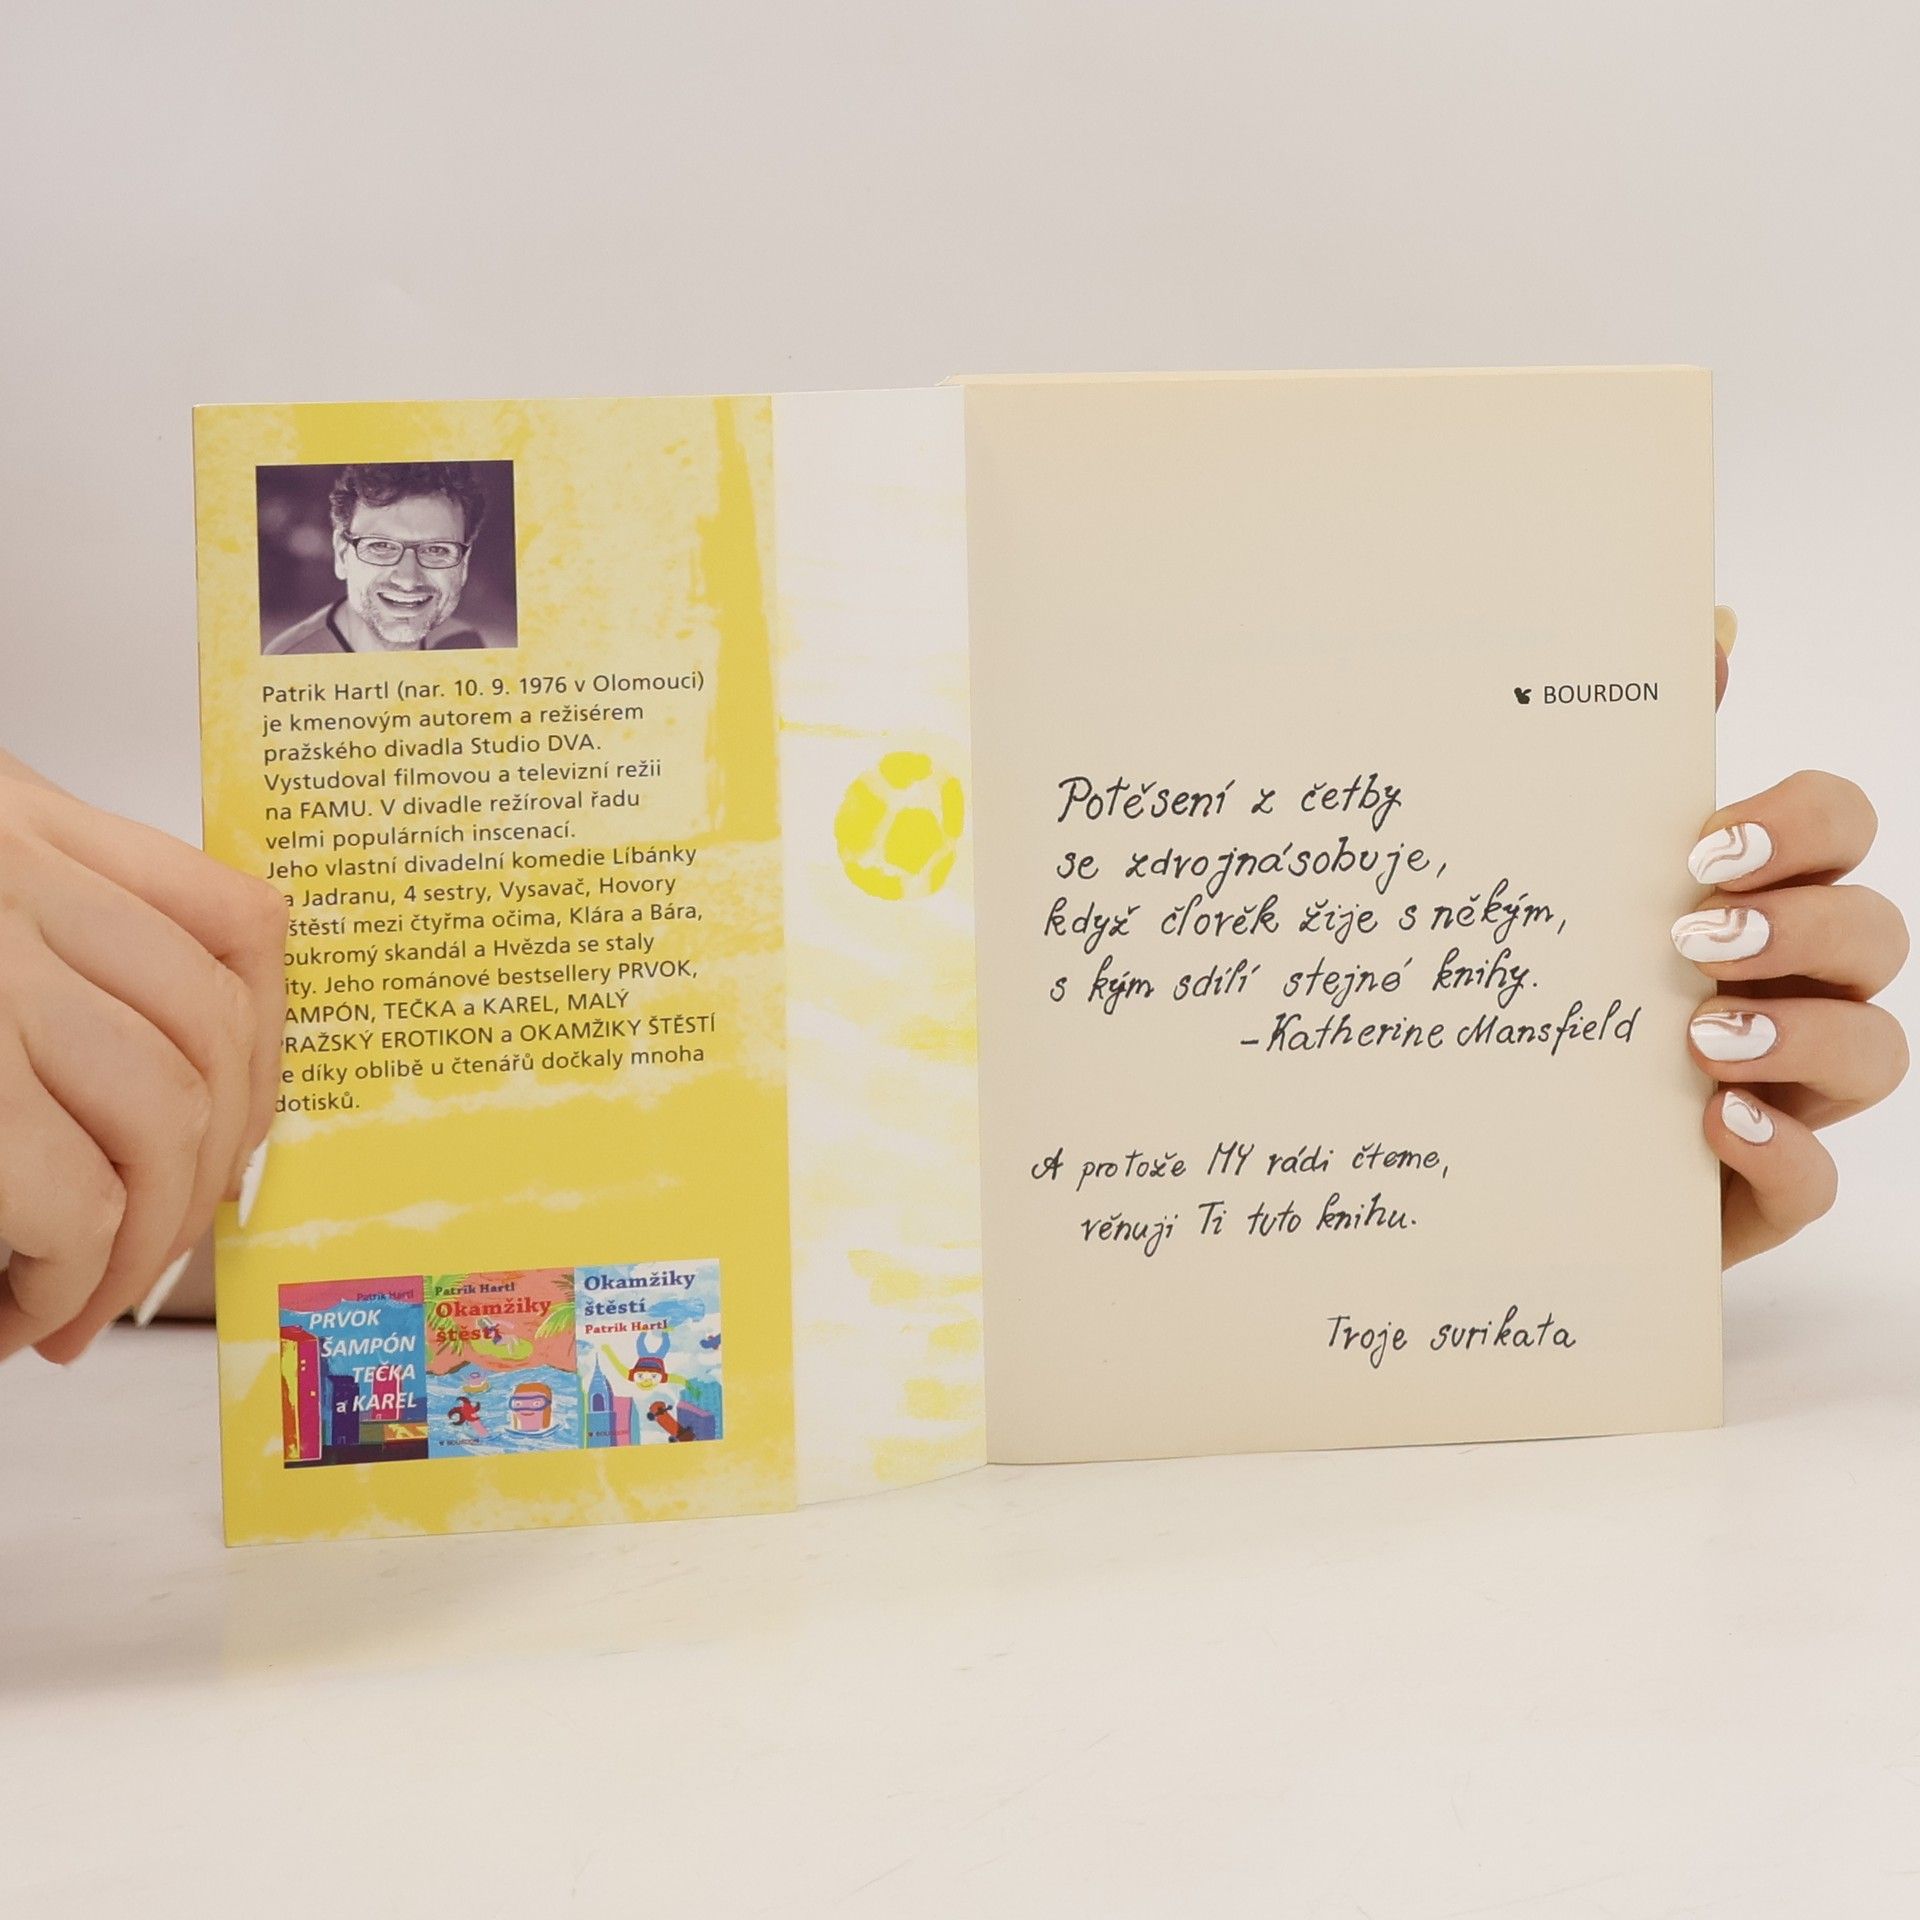 Patrik Hartl (nar. 10. 9. 1976 v Olomouci)
je kmenovým autorem a režisérem
pražského divadla Studio DVA.
Vystudoval filmovou a televizní režii
na FAMU. V divadle režíroval řadu
velmi populárních inscenací.
Jeho vlastní divadelní komedie Líbánky
a Jadranu, 4 sestry, Vysavač, Hovory
štěstí mezi čtyřma očima, Klára a Bára,
oukromý skandál a Hvězda se staly
ity. Jeho románové bestsellery PRVOK,
AMPÓN, TEČKA a KAREL, MALÝ
PRAŽSKÝ EROTIKON a OKAMŽIKY ŠTĚSTÍ
e díky oblibě u čtenářů dočkaly mnoha
dotisků.
Patrik Hartl
PRVOK
ŠAMPÓN
TEČKA
a KAREL
Patrik Hartl
Okamžiky
štěstí
BOURDON
Okamžiky
štěstí
Patrik Hartl
BOURDON
BOURDON
Potěsení z četby
se zdvojnásobuje,
když člověk žije s někým,
s kým sdílí stejné knihy.
– Katherine Mansfield
A protože MY rádi čteme,
věnuji Ti tuto knihu.
Tvoje surikata